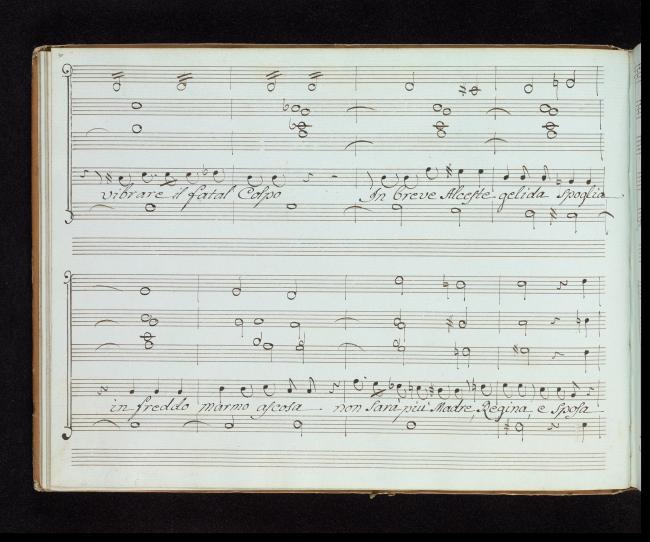 vibrare il fatal Colpo In breve Alceste gelida Spoglia
in freddo marmo ascosa non sara piu Madre, Regina e Sposa